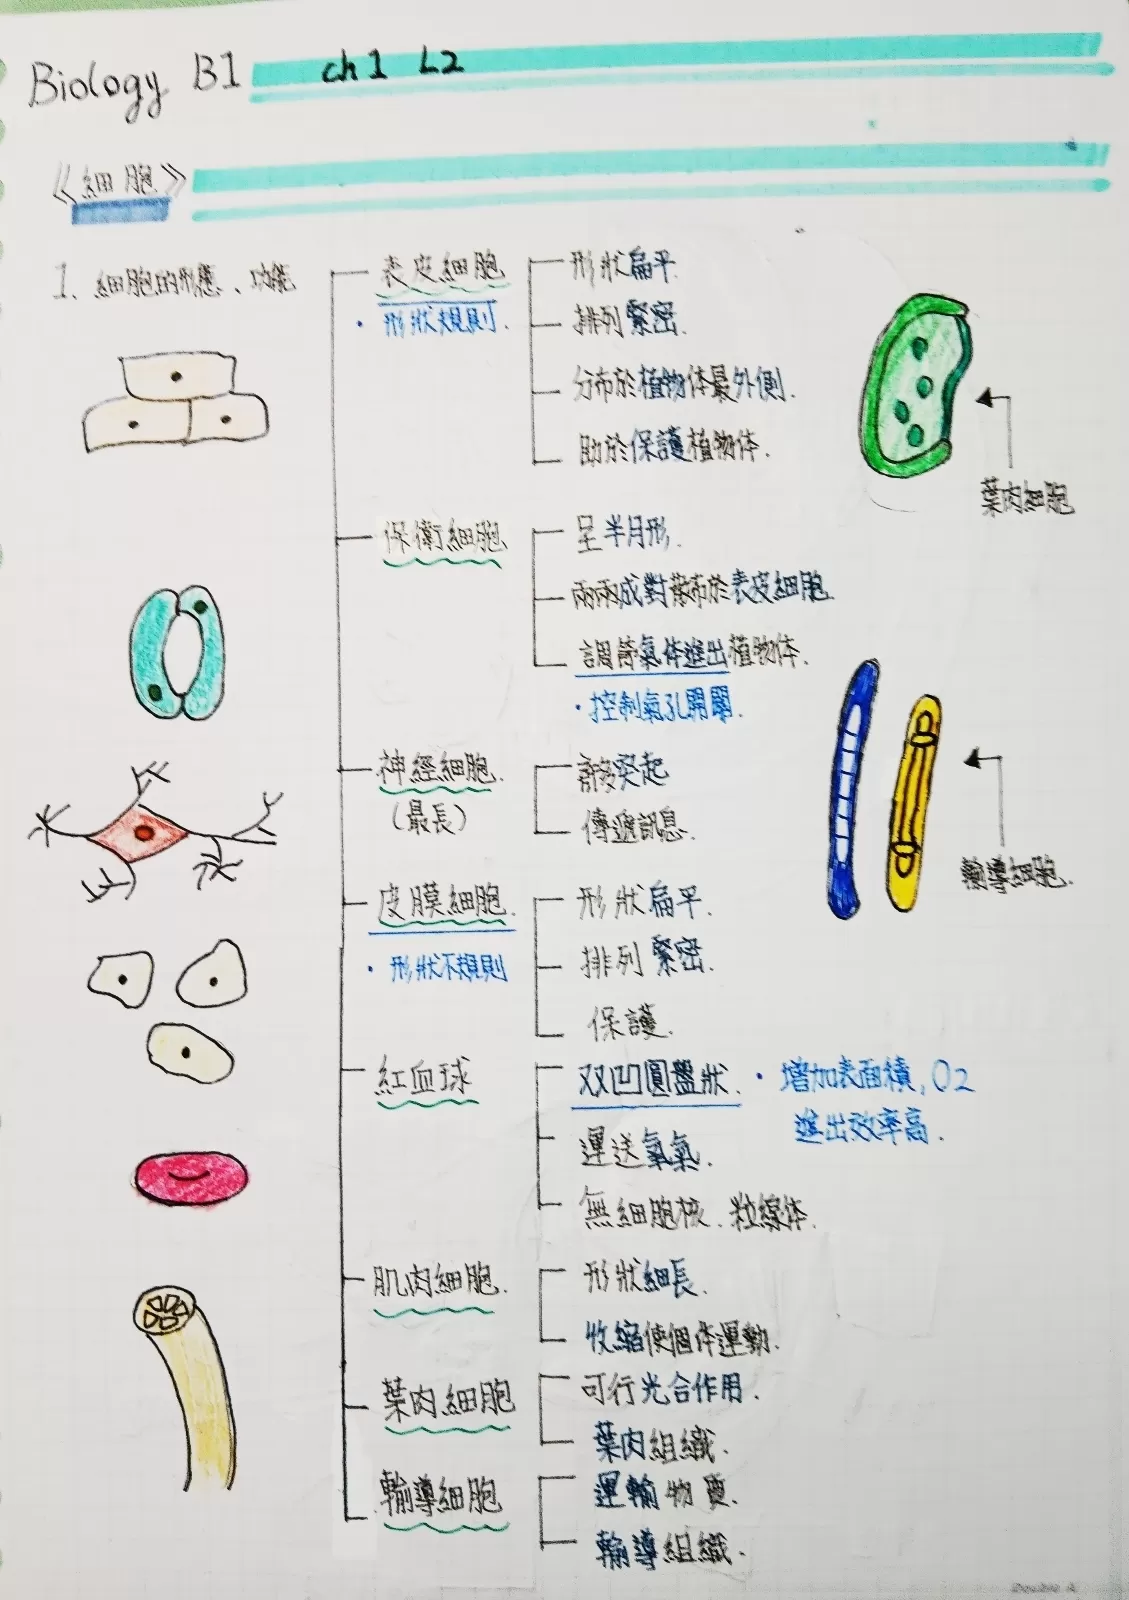 Biology B1 ch1 L2
《細胞》
1、細胞的形態、功能
表皮細胞
・形狀規則.
形狀扁平
排列緊密.
分布於植物体最外側.
助於保護植物体.
葉肉細胞
保衛細胞
呈半月形.
兩兩成對散布於表皮細胞.
調節氣体進出植物体.
・控制氣孔開關.
神經細胞.
(最長)
許多突起
傳遞訊息.
輸導細胞.
皮膜細胞.
・形狀不規則
形狀扁平.
排列緊密.
保護.
紅血球
双凹圓盤狀.・增加表面積,O2
進出效率高.
運送氧氣.
無細胞核、粒線体.
肌肉細胞.
形狀細長.
收縮使個体運動.
葉肉細胞
可行光合作用.
葉肉組織.
輸導細胞
運輸物質.
輸導組織.
Double A